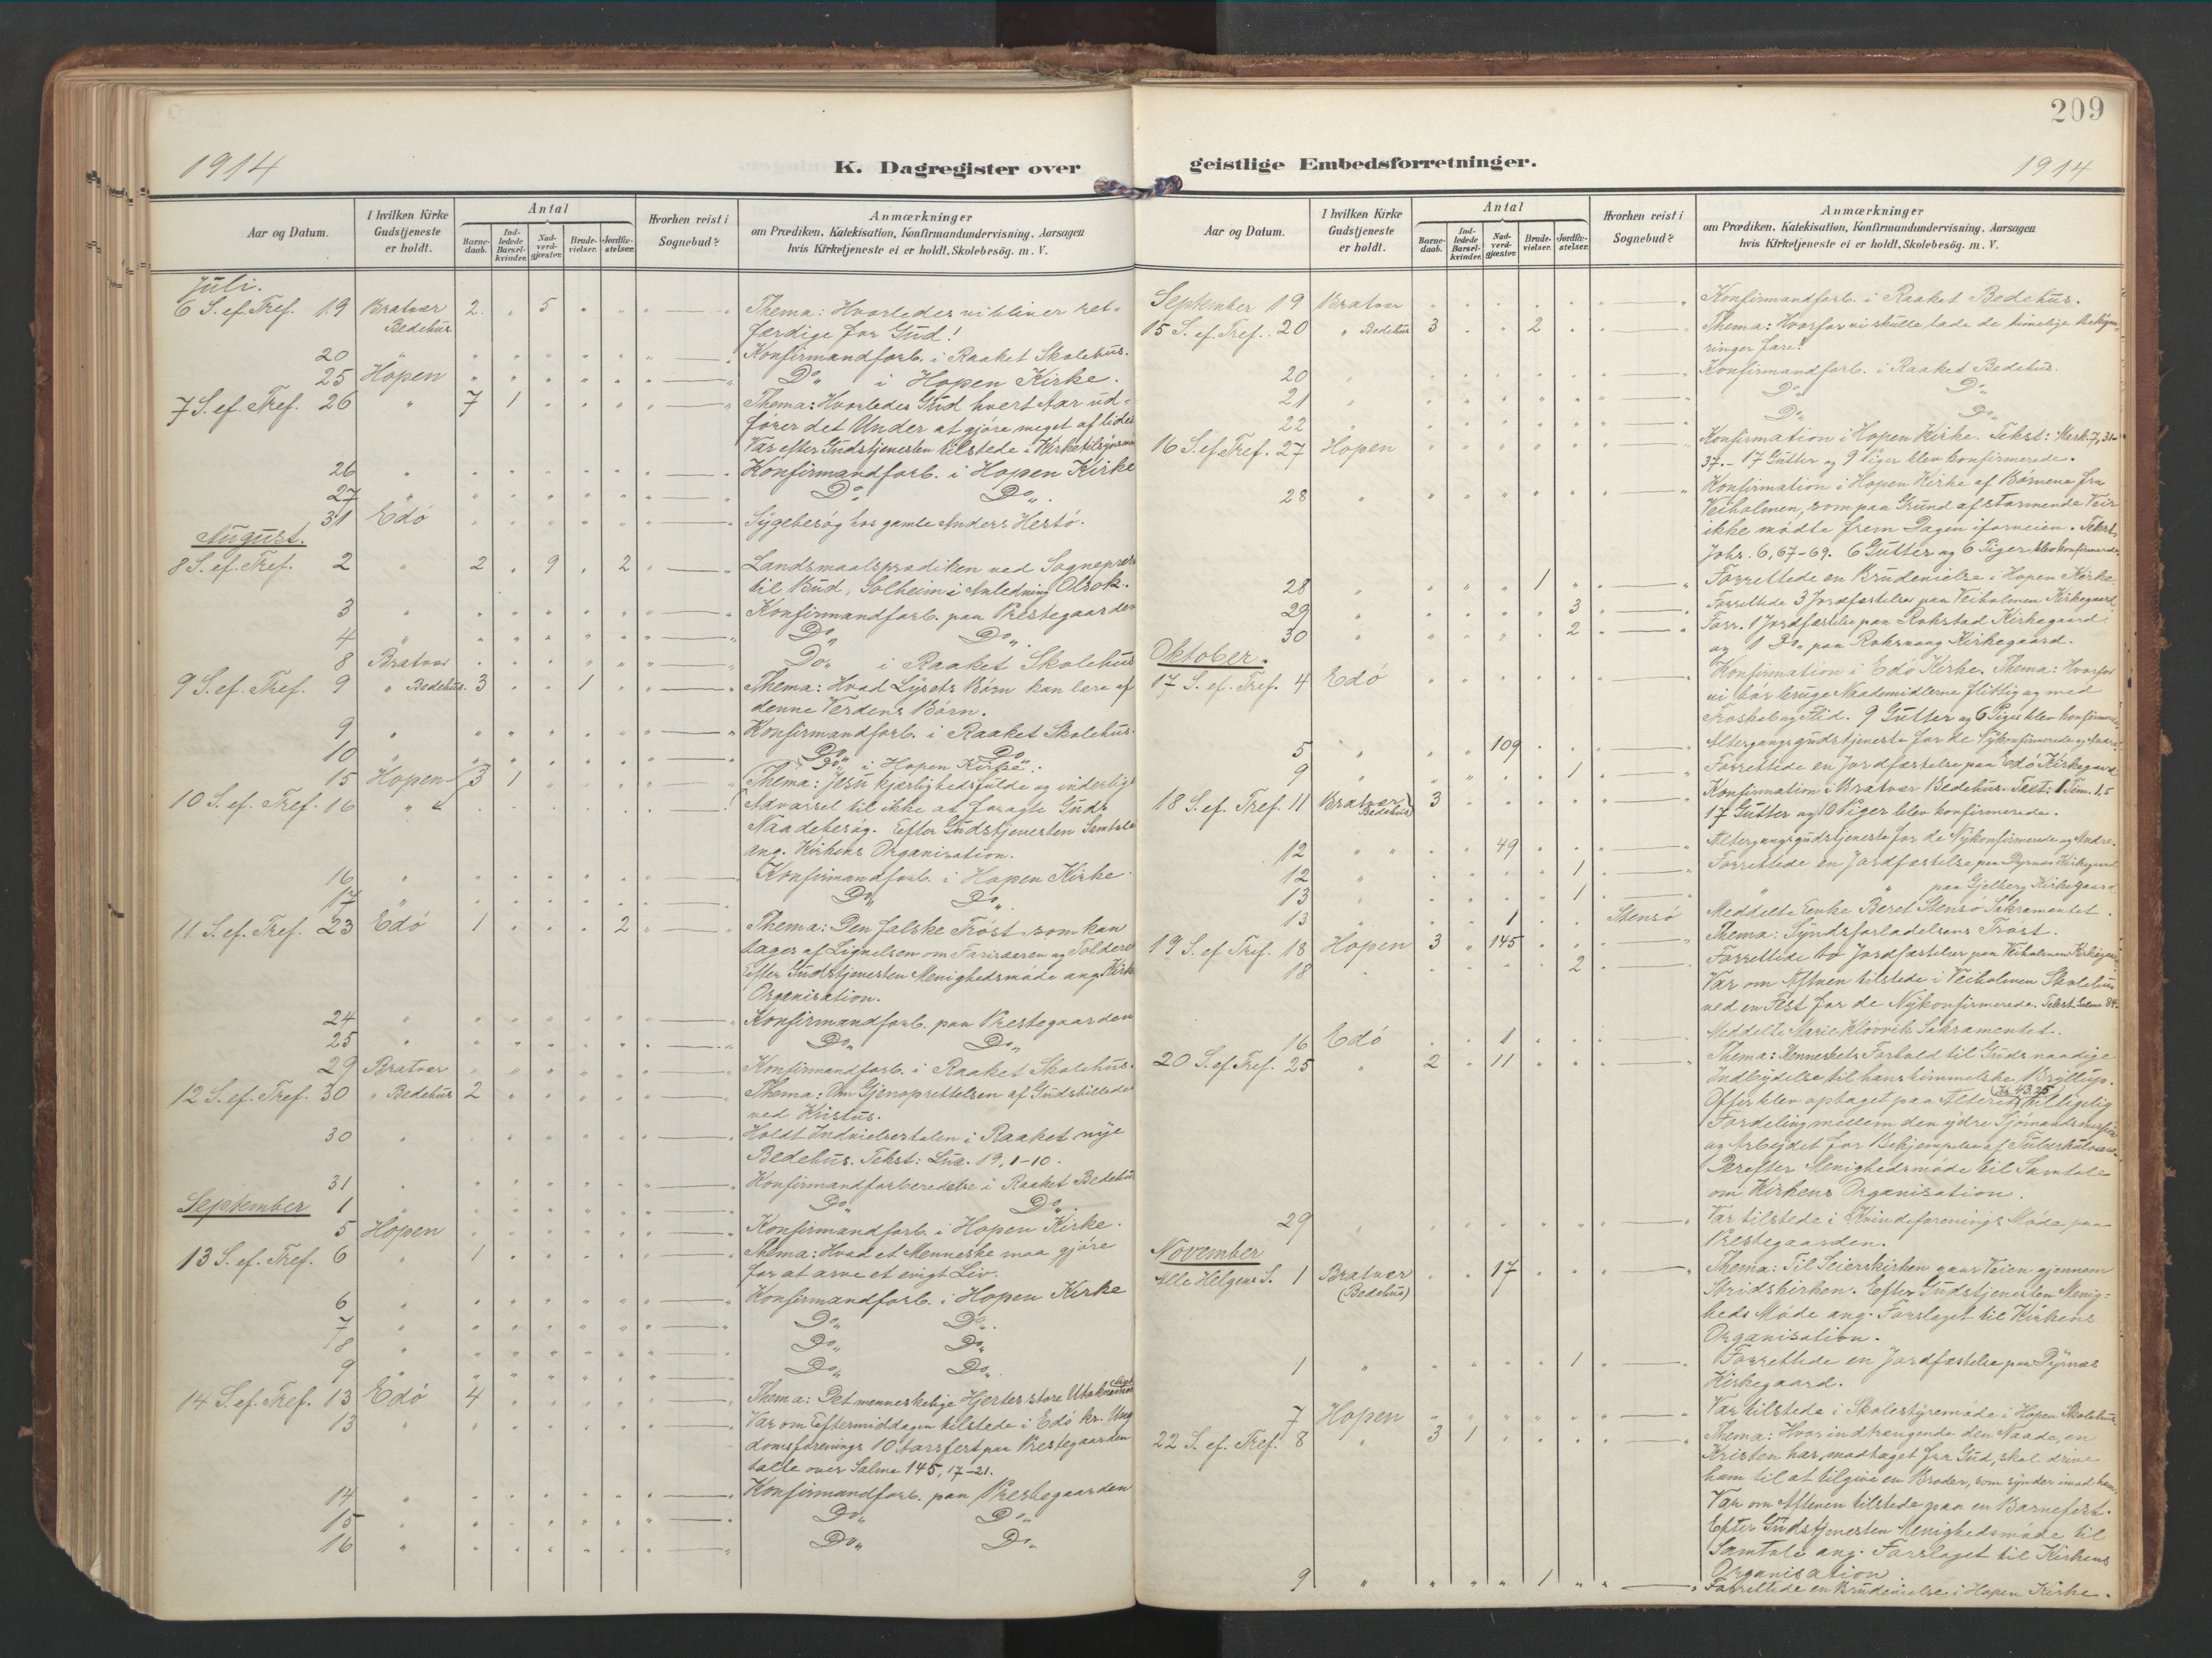 1914
K. Dagregister over
Aar og Datum.
I hvilken Kirke Gudstjeneste er holdt.
Antal
Barne-daab.
Ind-ledede Barsel-kvinder.
Nad-verd-gjæster.
Brude-vielser.
Jordfæ-stelser.
Hvorhen reist i Sognebud?
Anmærkninger
om Prædiken, Katekisation, Konfirmandundervisning, Aarsagen
hvis Kirketjeneste ei er holdt, Skolebesög. m. V.
Juli.
6 S. ef. Tref. 19 Bratvær 2 " 5 " " Thema: Hvorledes vi bliver ret-
Bedehus. færdige for Gud!
20 " Konfirmandforb. i Raaket Skolehus.
25 Hopen Do i Hopen Kirke.
7 S. ef. Tref. 26 " 7 1 Thema: Hvorledes Gud hvert Aar ud-
fører det Under at gjøre meget af lidet
Var efter Gudstjenesten tilstede i
26 " Konfirmandforb. i Hopen Kirke
27 " Do Do
31 Edö Sygebesøg hos gamle Anders Hestö.
August.
8 S. ef. Tref. 2 " 2 " 9 " 2 Landsmaalsprædiken ved Sogneprest
til Bud, Solheim i Anledning Olsok.
3 " Konfirmandforb. paa Prestegaarden
4 " Do Do
8 Bratvær Do i Raaket Skolehus
9 S. ef. Tref. 9 " Bedehus. 3 " " 1 Thema: Hvad Lysets Børn kan lære af
denne Verdens Børn.
9 " Konfirmandforb. i Raaket Skolehus.
10 " Do Do
15 Hopen Do i Hopen Kirke.
10 S. ef. Tref. 16 " 3 1 Thema: Jesu kjærlighedsfulde og inderlige
Advarsel til ikke at foragte Guds
Naadebesøg. Efter Gudstjenesten Samtale
ang. Kirkens Organisation.
16 " Konfirmandforb. i Hopen Kirke.
17 " Do Do
11 S. ef. Tref. 23 Edö 1 " " " 2 Thema: Den falske Trøst som kan
tages af Lignelsen om Farisæeren og Tolderen
Efter Gudstjenesten Menighedsmøde ang. Kirk
Organisation.
24 " Konfirmandforb. paa Prestegaarden
25 " Do Do
29 Bratvær Konfirmandforb. i Raaket Skolehus.
12 S. ef. Tref. 30 " Bedehus 2 Thema: Om Gjenoprettelsen af Gudsbilledet
ved Kristus.
30 " Holdt Indvielsestalen i Raaket nye
Bedehus. Tekst: Luc. 19, 1-10.
31 " Konfirmandforberedelse i Raaket Bedehus
September 1 " Do Do
5 Hopen Konfirmandforb. i Hopen Kirke.
13 S. ef. Tref. 6 " 1 Thema: Hvad et Menneske maa gjøre
for at arve et evigt Liv.
6 " Konfirmandforb. i Hopen Kirke
7 " Do Do
8 " Do Do
9 " Do Do
14 S. ef. Tref. 13 Edö 4 Thema: Det menneskelige Hjertes store Utaknem
13 " Var om Eftermiddagen tilstede i Edö kr. Ung
domsforenings 10 Aarsfest paa Prestegaarden
talte over Salme 145, 17-21.
14 " Konfirmandforb. paa Prestegaarden
15 " Do Do
16 " Do Do
209
geistlige Embedsforretninger.
1914
Aar og Datum.
I hvilken Kirke Gudstjeneste er holdt.
Antal
Barne-daab.
Ind-ledede Barsel-kvinder.
Nad-verd-gjæster.
Brude-vielser.
Jordfæ-stelser.
Hvorhen reist i Sognebud?
Anmærkninger
om Prædiken, Katekisation, Konfirmandundervisning, Aarsagen
hvis Kirketjeneste ei er holdt, Skolebesög. m. V.
September 19 Bratvær Konfirmandforb. i Raaket Bedehus.
15 S. ef. Tref. 20 " Bedehus 3 " " 2 Thema: Hvorfor vi skulle lade de timelige Bekym-
ringer fare!
20 " Konfirmandforb. i Raaket Bedehus.
21 " Do Do
22 " Do Do
16 S. ef. Tref. 27 Hopen Konfirmation i Hopen Kirke. Tekst: Mark. 7, 31-
37. - 17 Gutter og 9 Piger blev konfirmerede.
28 " Konfirmation i Hopen Kirke af Børnene fra
Veiholmen, som paa Grund af stormende Veir
ikke mødte frem Dagen iforveien. Tekst:
Johs. 6, 67-69. 6 Gutter og 6 Piger blev konfirmerede
28 " 1 Forrettede en Brudevielse i Hopen Kirke
29 " 3 Forrettede 3 Jordfæstelser paa Veiholmen Kirkegaard.
30 " 2 Forr. 1 Jordfæstelse paa Rokstad Kirkegaard
og 1 Do paa Kirkegaard.
Oktober.
17 S. ef. Tref. 4 Edö Konfirmation i Edö Kirke. Thema: Hvorfor
vi bør bruge Naademidlerne flittig og med
Troskab og Flid. 9 Gutter og 6 Piger blev konfirmerede
5 " 109 Altergangsgudstjeneste for de Nykonfirmerede og Andre.
9 " 1 Forrettede en Jordfæstelse paa Edö Kirkegaard
18 S. ef. Tref. 11 Bratvær (Bedehus) 3 Konfirmation i Bratvær Bedehus. Text: 1 Tim. 1.5
17 Gutter og 10 Piger blev konfirmerede.
12 " 49 Altergangsgudstjeneste for de Nykonfirmerede og Andre.
12 " 1 Forrettede en Jordfæstelse paa Dyrnæs Kirkegaard
13 " 1 " " paa Gjelberg Kirkegaard
13 " 1 Stensö Meddelte Enke Beret Stensö Sakramentet.
19 S. ef. Tref. 18 Hopen 3 " 145 Thema: Syndsforladelsens Trøst.
18 " 2 Forrettede to Jordfæstelser paa Veiholmen Kirkegaard
Var om Aftnen tilstede i Veiholmen Skolehus
ved en Fest for de Nykonfirmerede. Tekst. Salme 84.
16 Edö 1 Meddelte Marie Sakramentet.
20 S. ef. Tref. 25 " 2 " 11 Thema: Menneskets Forhold til Guds naadige
Indbydelse til hans himmelske Bryllup.
Offer blev optaget paa Alteret (Kr. 43.25) til ligelig
Fordeling mellem den ydre Sjömandsmission
og Arbeidet for Bekjempelse af Tuberkulosen.
Derefter Menighedsmøde til Samtale
om Kirkens Organisation.
29 " Var tilstede i Kvindeforenings Møde paa
Prestegaarden.
November
Alle Helgens S. 1 Bratvær (Bedehus) 17 Thema: Til Seierskirken gaar Veien gjennem
Stridskirken. Efter Gudstjenesten Menig-
heds Møde ang. Forslaget til Kirkens
Organisation.
1 " 1 Forrettede en Jordfæstelse paa Dyrnæs
Kirkegaard.
7 Hopen Var tilstede i Skolestyremøde i Hopen Skolehus.
22 S. ef. Tref. 8 " 3 1 Thema: Hvor indtrængende den Naade, en
Kristen har modtaget fra Gud, skal drive
ham til at tilgive en Broder, som synder imod ham.
Var om Aftenen tilstede paa en Barnefest.
Efter Gudstjenesten Menighedsmøde til
Samtale ang. Forslaget til Kirkens
Organisation
9 " 1 Forrettede en Brudevielse i Hopen Kirke.